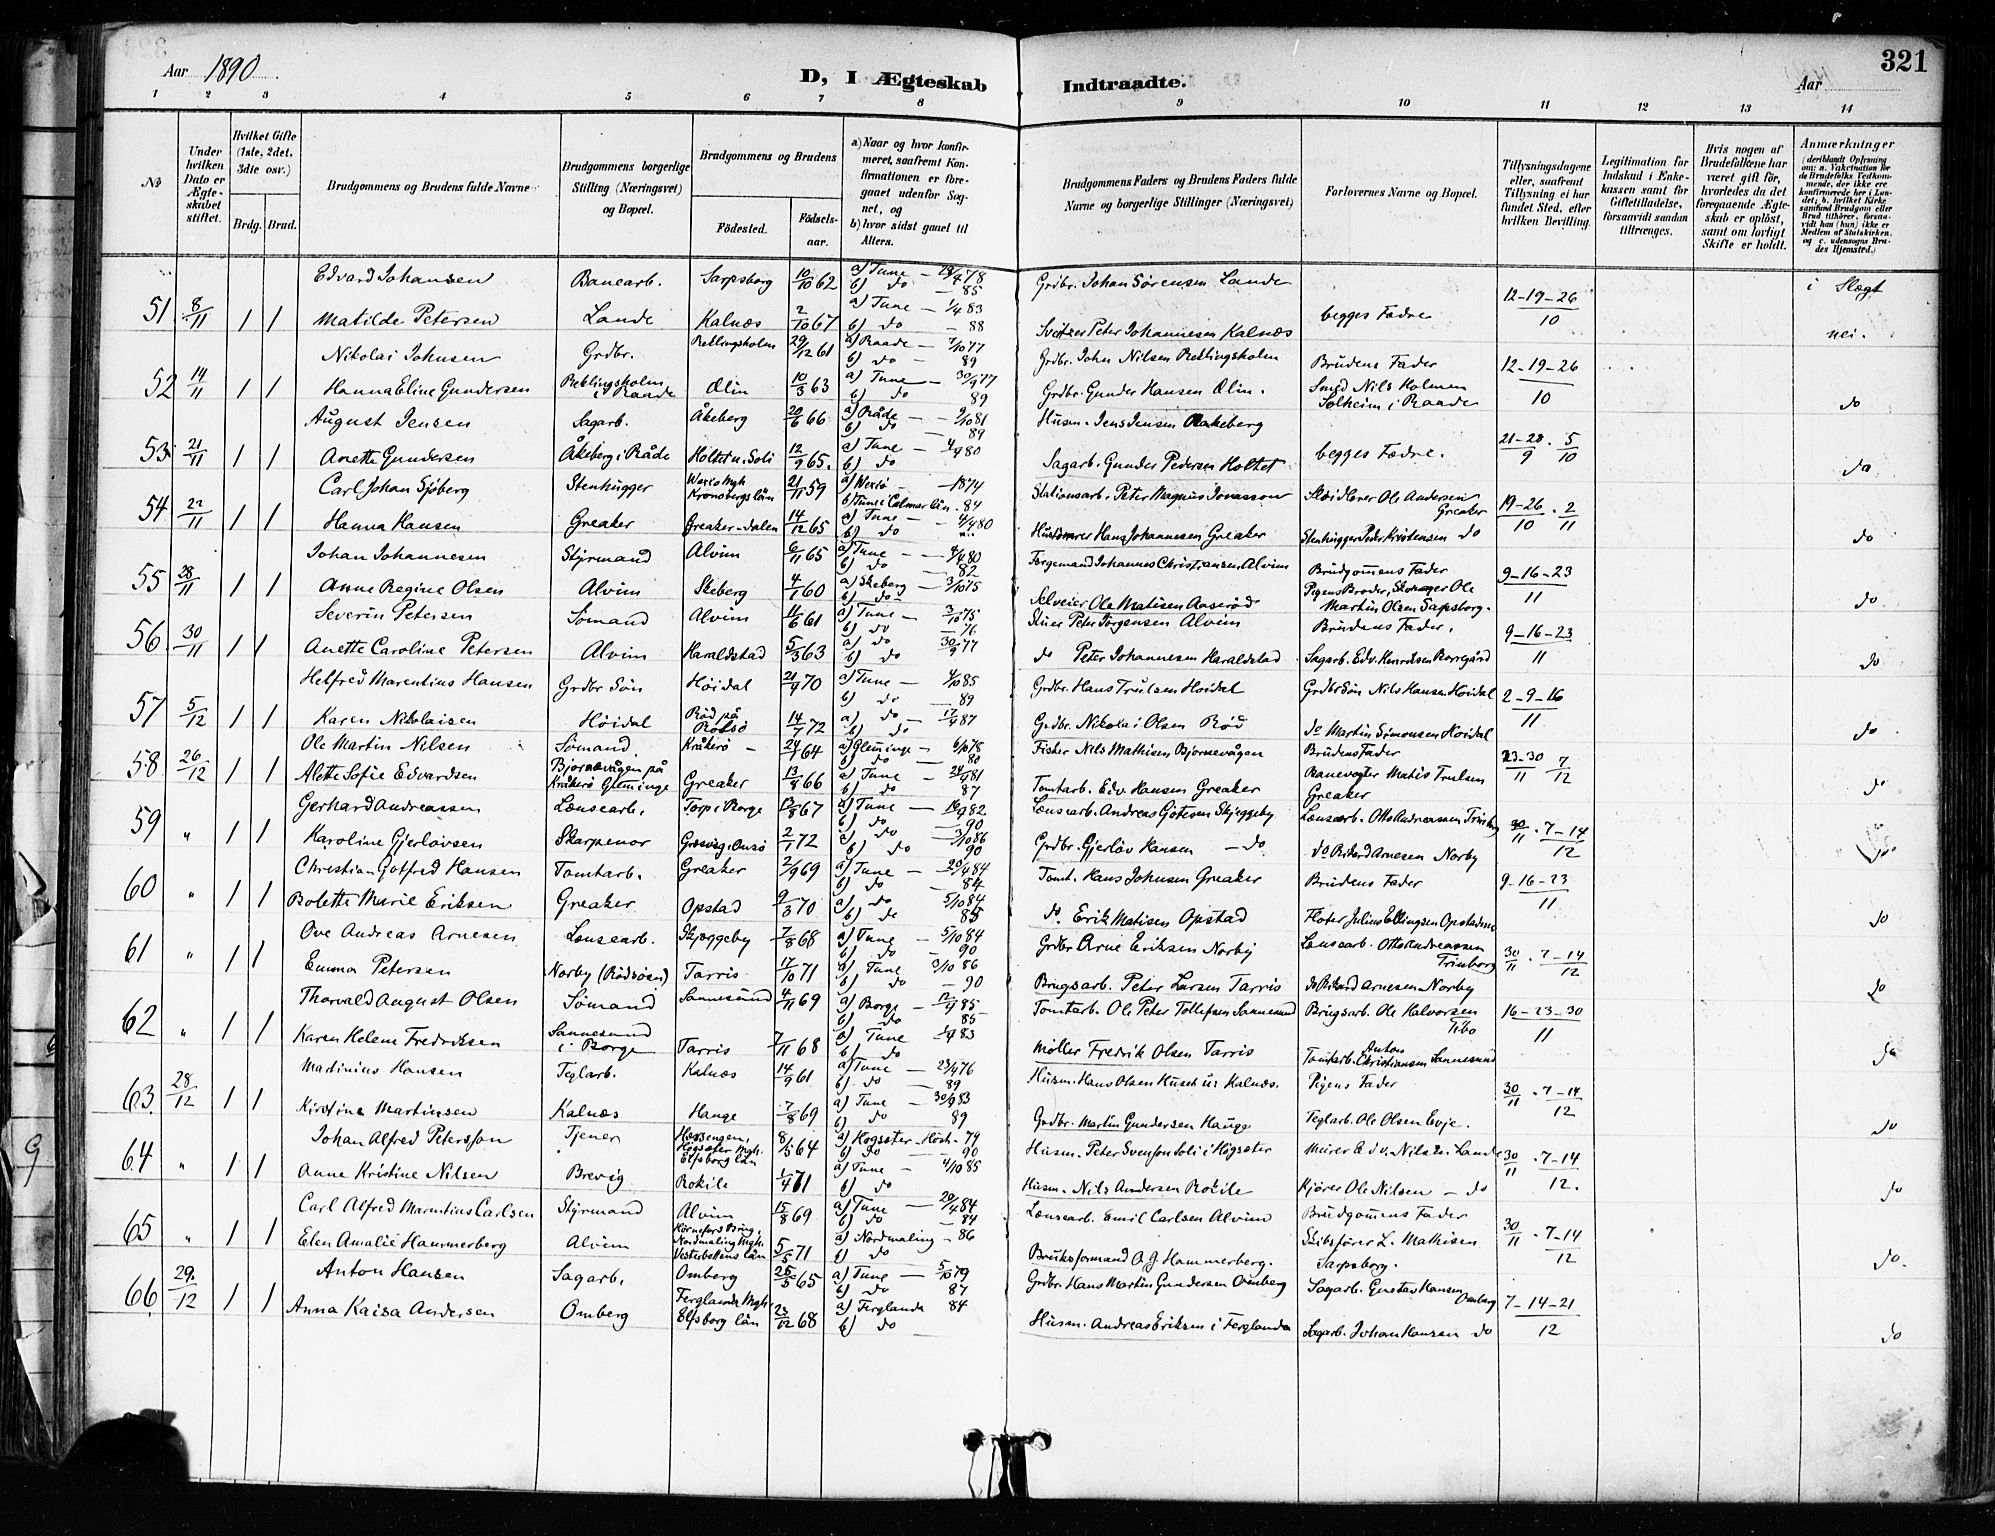 321
Aar 1890
D, I Ægteskab Indtraadte.
Aar
1 2 3 4 5 6 7 8 9 10 11 12 13 14
No
Under hvilken Dato er Ægteskabet stiftet.
Hvilket Gifte (1ste, 2det, 3die osv.)
Brdg. Brud.
Brudgommens og Brudens fulde Navne
Brudgommens borgerlige Stilling (Næringsvei) og Bopæl.
Brudgommens og Brudens
Fødested. Fødselsaar.
a) Naar og hvor konfirmeret, saafremt Konfirmationen er foregaaet udenfor Sognet, og
b) hvor sidst gaaet til Alters.
Brudgommens Faders og Brudens Faders fulde Navne og borgerlige Stillinger (Næringsvei)
Forlovernes Navne og Bopæl.
Tillysningsdagene eller, saafremt Tillysning ei har fundet Sted, efter hvilken Bevilling.
Legitimation for Indskud i Enkekassen samt for Giftetilladelse, forsaavidt saadan tiltrænges.
Hvis nogen af Brudefolkene har været gift før, hvorledes da det foregaaende Ægteskab er opløst, samt om lovligt Skifte er holdt.
Anmærkninger
i Slægt
Edvard Johansen Banearb. Sarpsborg 10/10 62 a) Tune — 28/4 78 Grdbr. Johan Sørensen Lande
b) do — 85
51 8/11 1 1 Matilde Petersen Lande Kalnæs 2/10 67 a) Tune — 1/4 83 Sveitzer Peter Johannesen Kalnæs begges Fædre 12-19-26/10 nei.
b) do — 88
Nikolai Johnsen Grdbr. Rellingsholm 29/12 61 a) Raade — 7/10 77 Grdbr. John Nilsen Rellingsholm Brudens Fader 12-19-26/10
b) do — 89
52 14/11 1 1 Hanna Eline Gundersen Rellingsholm i Raade Ølin 10/3 63 a) Tune — 30/9 77 Grdbr. Gunder Hansen Ølin. Smed Nils Holmen Solheim i Raade do
b) do 89
August Jensen Sagarb. Åkeberg 20/6 66 a) Råde — 9/10 81 Husm. Jens Jensen Aakeberg
b) do — 89
53 21/11 1 1 Anette Gundersen Åkeberg i Råde Holtet u. Soli 12/9 65. a) Tune — 4/4 80 Sagarb. Gunder Pedersen Holtet begges Fædre. 21-28/9 . 5/10 do
b) do
Carl Johan Sjöberg Stenhugger Kronobergs län 21/11 59 a) Wexiö — 1874 Stationsarb. Peter Magnus Jonasson Ole Andersen Greaker 19-26/10 . 2/11
54 22/11 1 1 Hanna Hansen Greaker Greaker-dalen 14/12 65 a) Tune — 4/4 80 Hans Johannesen Greaker Stenhugger Peder Kristensen do do
b) do
Johan Johannesen Styrmand Alvim 6/11 65 a) Tune — 4/4 80 Formand Johannes Christiansen Alvim Brudgom̄ens Fader 9-16-23/11
b) do 82
55 28/11 1 1 Anne Regine Olsen Alvim Skeberg 4/1 60 a) Skeberg — 3/10 75 Selveier Ole Matisen Aaserød Pigens Broder, Skomager Ole Martin Olsen Sarpsborg. do
b) do
Severin Petersen Sømand Alvim 11/6 61 a) Tune — 3/10 75 Peter Jørgensen Alvim Brudens Fader. 9-16-23/11
b) do — 76
56 30/11 1 1 Anette Caroline Petersen Alvim Haraldstad 5/3 63 a) do 30/9 77 do Peter Johannesen Haraldstad Sagarb. Edv. Henriksen Borregård do
b) do
Helfred Marentius Hansen Grdbr Søn Høidal 21/9 70 a) Tune — 4/10 85 Grdbr. Hans Trulsen Høidal Grdbr Søn Nils Hansen Høidal 2-9-16/11
b) do — 89
57 5/12 1 1 Karen Nikolaisen Høidal Rød på Rolsø 14/7 72 a) do — 17/4 87 Grdbr. Nikolai Olsen Rød do Martin Simonsen Høidal do
b) do
Ole Martin Nilsen Sømand. Kråkerø 24/7 64 a) Glemminge — 6/10 78 Fisker Nils Mathisen Bjørnevågen Brudens Fader 23-30/11 7/12
b) do — 80
58 26/12 1 1 Alette Sofie Edvardsen Bjørnevågen på Kråkerö Glem̄inge Greaker 13/8 66 a) Tune — 24/4 81 Tomtarb. Edv. Hansen Greaker Banevogter Matis Trulsen Greaker do
b) do 87
Gerhard Andreassen Lænsearb. Torp i Borge 13/8 67 a) Tune — 82 Lænsearb. Andreas Skjeggeby Lænsearb. Otto Andreassen Trinborg 30/11 . 7-14/12
b) do — 90
59 " 1 1 Karoline Gjerløvsen Skarpenor Græsvig i Onsø 2/1 72 a) do — 3/10 86 Grdbr. Gjerløv Hansen — do do Rikard Arnesen Norby do
b) do 90
Christian Gotfred Hansen Tomtarb. Greaker 2/9 69 a) Tune — 20/4 84 Tomt. Hans Johnsen Greaker Brudens Fader 9-16-23/11
b) do — 84
60 " 1 1 Bolette Marie Eriksen Greaker Opstad 9/3 70 a) do 5/10 84 do. Erik Matisen Opstad Fløter Julius Ellingsen Opstad do
b) do 85
Ove Andreas Arnesen Lensearb. Skjeggeby 7/8 68 a) Tune — 5/10 84 Grdbr Arne Eriksen Norby Lensearb. Otto Andreassen Trinborg 30/11 . 7-14/12
b) do — 90
61 " 1 1 Emma Petersen Norby (Rødsøsen) Tarris 17/10 71 a) Tune 3/10 86 Brugsarb. Peter Larsen Tarris do Rikard Arnesen Norby do
b) do — 90
Thorvald August Olsen Sømand Sannesund 4/11 69 a) Borge — 85 Tomtarb. Ole Peter Tollefsen Sannesund Brugsarb. Ole Halvorsen Tibo 16-23-30/11
b) do 85
62 " 1 1 Karen Helene Fredriksen Sannesund i Borge Tarris 7/11 68 a) Tune — 83 Møller Fredrik Olsen Tarris Tomtarb. Anton Christiansen Sannesund do
b) do
Martinius Hansen Teglarb. Kalnæs 14/9 61 a) Tune — 23/4 76 Husm. Hans Olsen Huset u: Kalnæs. Pigens Fader 30/11 . 7-14/12
b) do — 89
63 28/12 1 1 Kirstine Martinsen Kalnæs Hauge 7/8 69 a) Tune — 30/9 83 Grdbr. Martin Gundersen Hauge Teglarb. Ole Olsen Evje. do
b) do 89
Johan Alfred Petersson Tjener Elfsborg län 8/5 64 a) Høgsäter — 79 Husm. Peter Svenson Soli i Høgsäter Murer Edv. Nilsen Lande 30/11 . 7-14/12.
b) do — 90
64 " 1 1 Anne Kristine Nilsen Brevig Rokile 1/4 71 a) Tune — 4/10 85 Husm. Nils Andersen Rokile Kjører Ole Nilsen — do do
b) do
Carl Alfred Marentius Carlsen Styrmand Alvim 15/8 69 a) Tune — 20/4 84 Lænsearb. Emil Carlsen Alvim Brudgom̄ens Fader 30/11 . 7-14/12
b) do — 84
65 " 1 1 Elen Amalie Hammerberg Alvim Nordmaling Vesterbottens län 5/5 71 a) Nordmaling — 86 Bruksformand A. G. Hammerberg. Skibsfører L. Mathisen Sarpsborg. do.
b) do
Anton Hansen Sagarb. Omberg 25/5 65 a) Tune — 5/10 79 Grdbr. Hans Martin Gundersen Omberg Sagarb. Gustav Hansen Omberg 7-14-21/12
b) do 87
66 29/12 1 1 Anna Kaisa Andersen Omberg Elfsborg län 23/12 68 a) Ferglanda 84 Husm. Andreas Eriksen i Ferglanda Sagarb. Johan Hansen do do
b) do